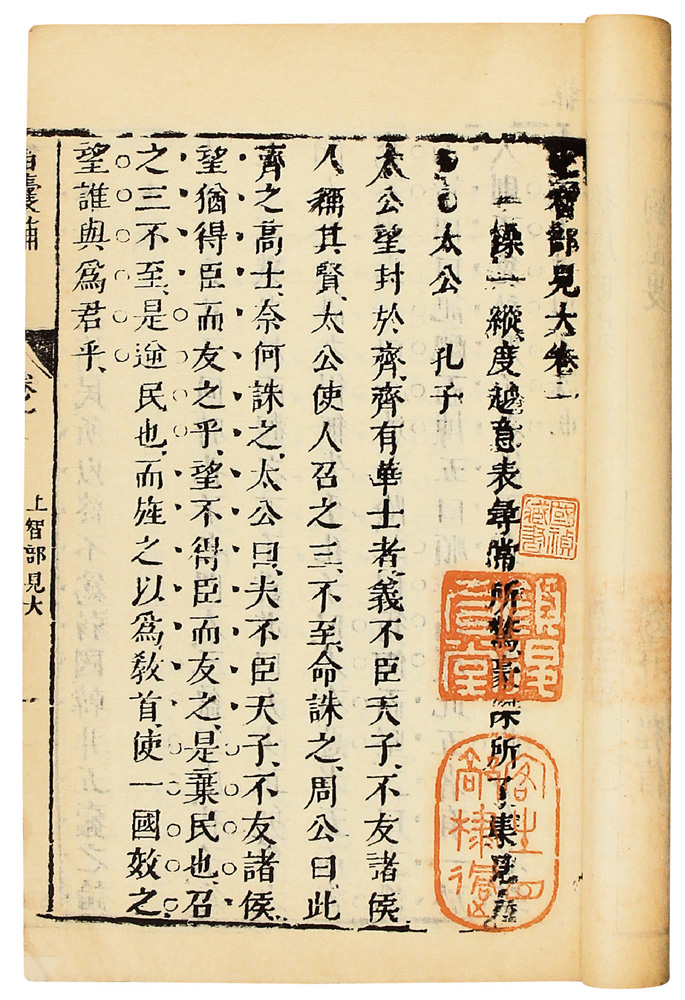 上智部見大卷一
一操一縱度越意表尋常所驚豪傑所了集見大
太公 孔子
太公望封於齊、齊有華士者、義不臣天子、不友諸侯、
人稱其賢、太公使人召之三、不至、命誅之、周公曰、此
齊之高士、奈何誅之、太公曰、夫不臣天子、不友諸侯、
望猶得臣而友之乎、望不得臣而友之、是棄民也、召
之三不至、是逆民也、而旌之以爲教首、使一國效之、
望誰與爲君乎、
智囊補
卷一
上智部見大
一